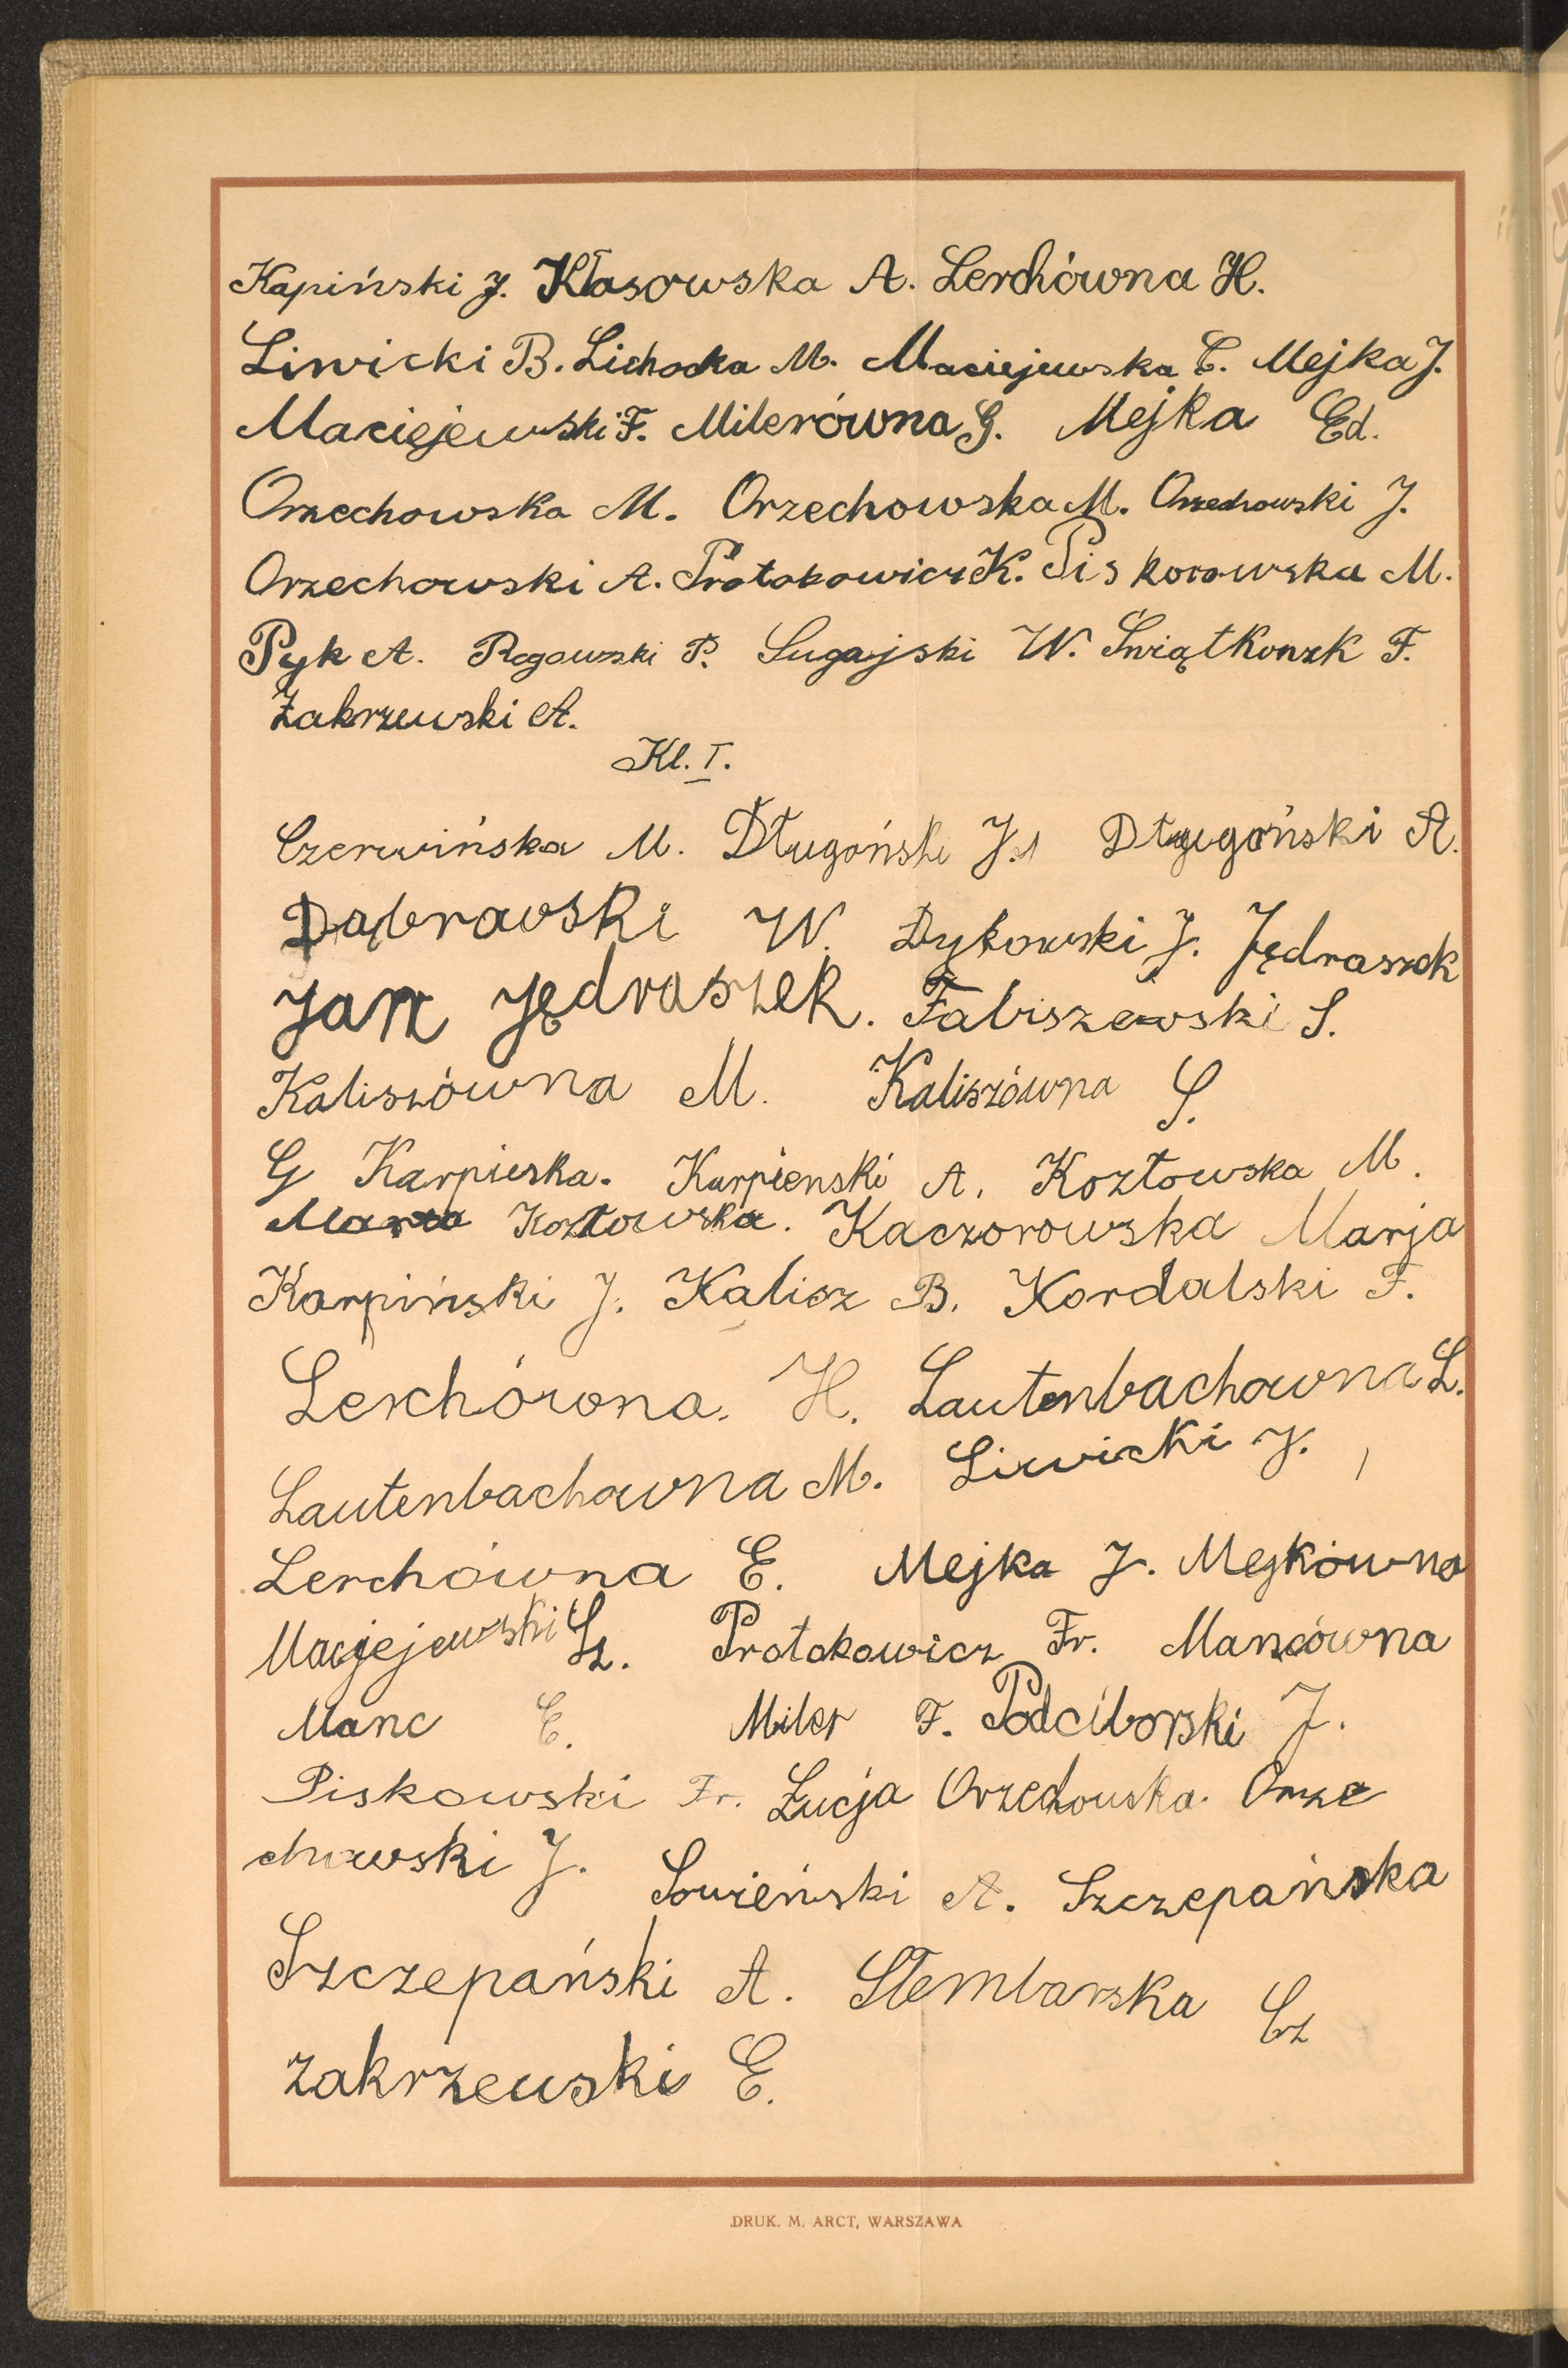 Kapiński J. Kłasowska A. Lerchówna H.
Liwicki B. Lichocka M. Maciejewska C. Mejka J.
Maciejewski F. Milerówna G. Mejka Ed.
Orzechowska M. Orzechowska M. Orzechowski J.
Orzechowski A. Protokowicz K. Piskorowska M.
Pyk A. Rogowski P. Sugajski W. Świątkowzk F.
Zakrzewski A.
Kl. I.
Czerwińska M. Długoński J. Długoński A.
Dąbrowski W. Dykowski J. Jędraszek
Jan Jędraszek. Fabiszewski S.
Kaliszówna M. Kaliszówna S.
G Karpieska. Karpienski A. Kozłowska M.
Maria Kozłowska. Kaczorowska Marja
Karpiński J. Kalisz B. Kordalski F.
Lerchówna. H. Lautenbachowna L.
Lautenbachowna M. Liwicki J.
Lerchówna E. Mejka J. Mejkówna
Maciejewski Sz. Protokowicz Fr. Mancówna
Manc E. Miler F. Podciborski J.
Piskowski Fr. Łucja Orzechowska. Orze
chowski J. Sowieński A. Szczepańska
Szczepański A. Stembarska Cz
Zakrzewski E.
DRUK. M. ARCT, WARSZAWA